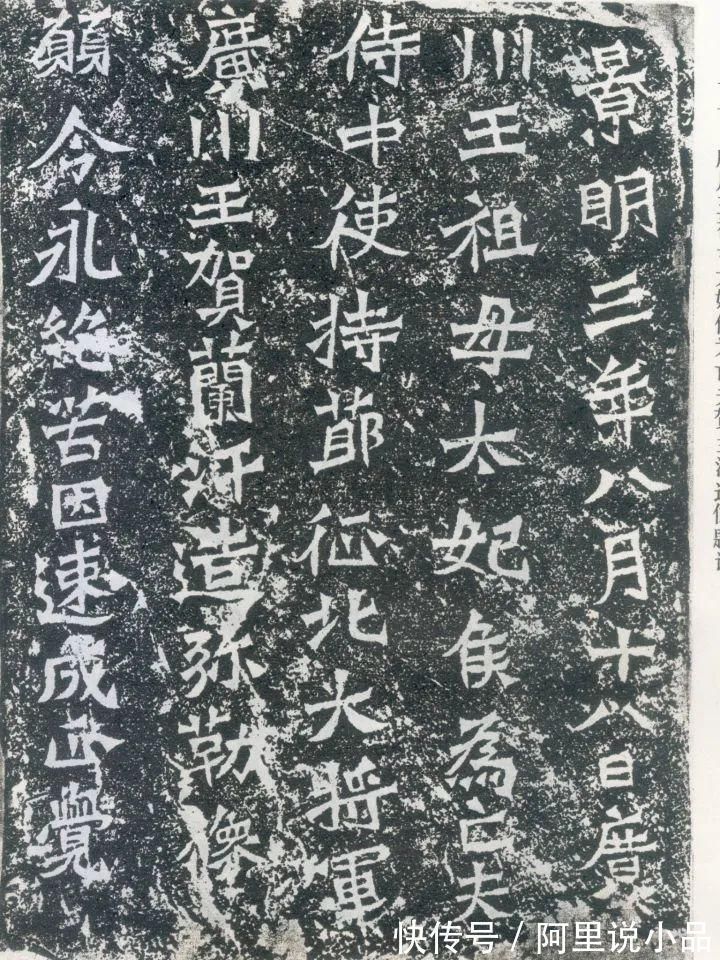 景明三年八月十八日廣
川王祖母太妃侯為亡夫
侍中使持節征北大將軍
廣川王賀蘭汗造弥勒像
願今永絕苦因速成正覺
快传号 / 阿里说小品